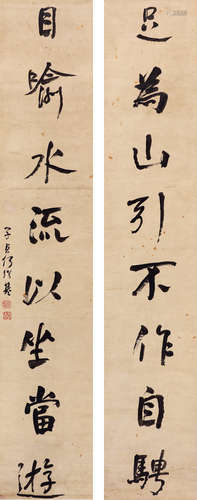 足為山引不作自騁
目喻水流以坐當遊
子貞何紹基